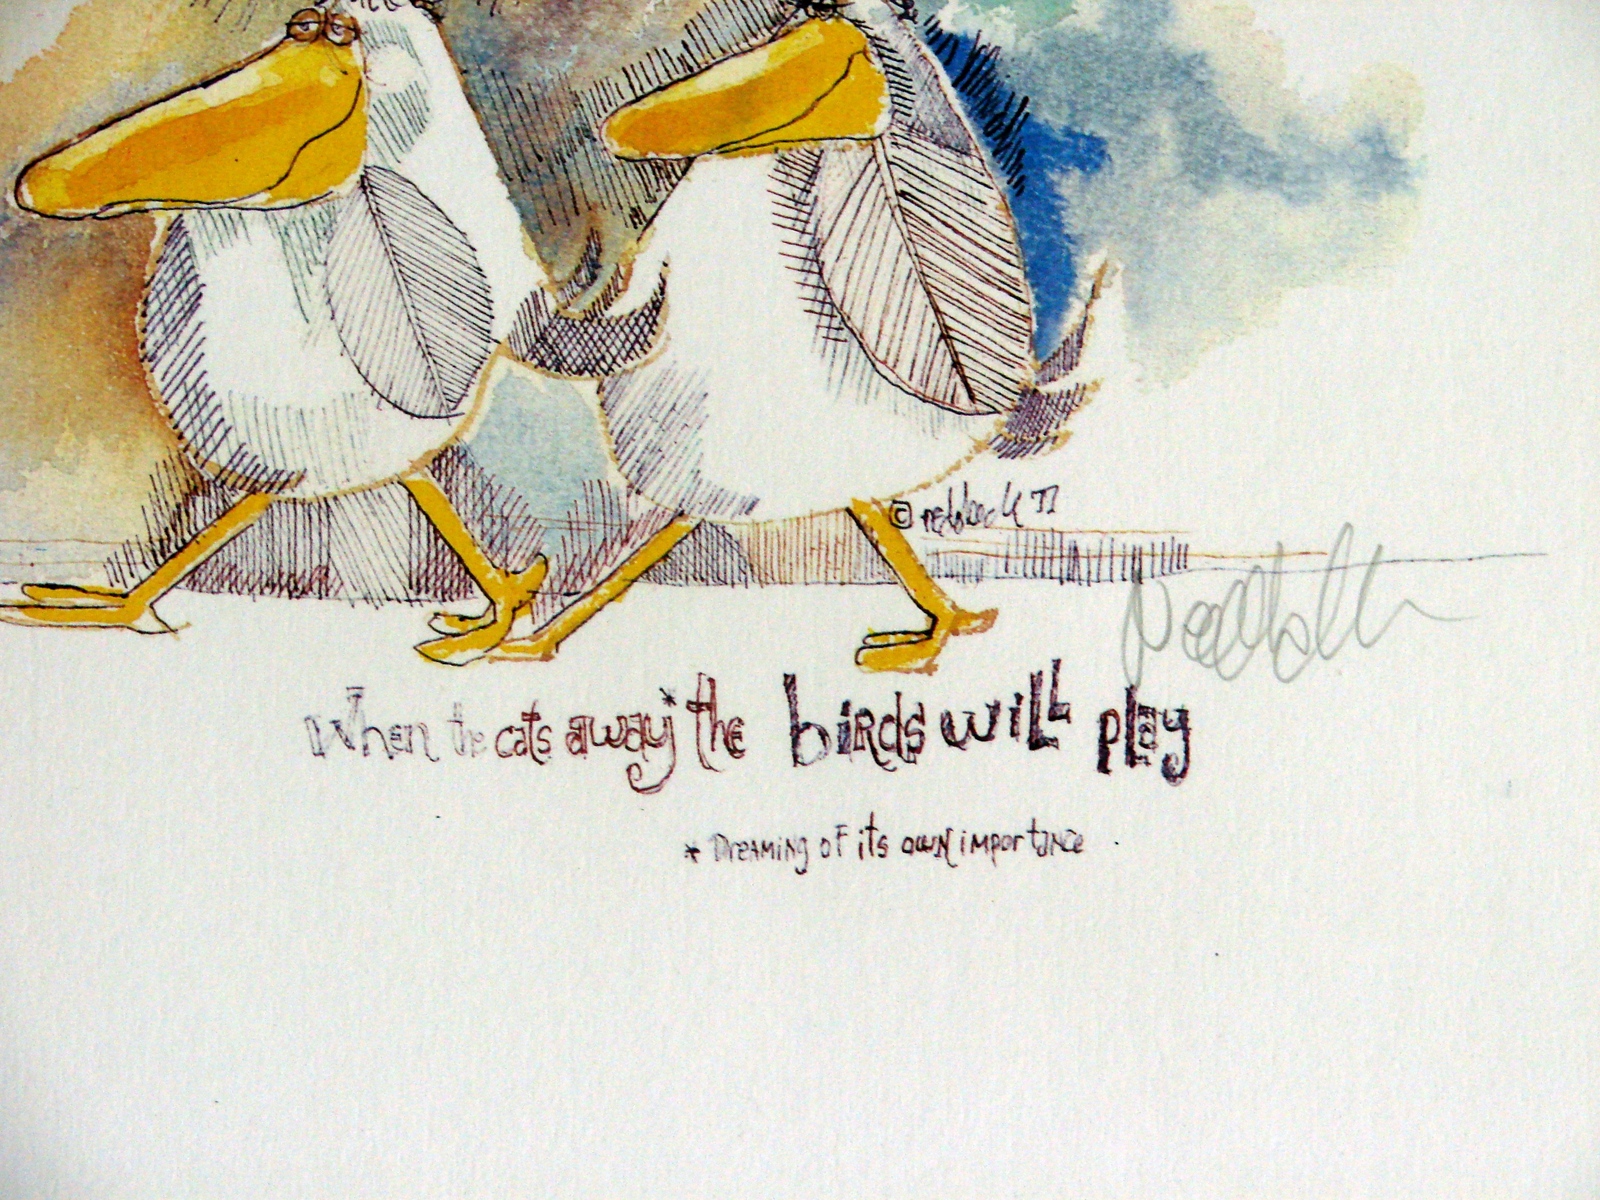 ©
When the cats away* the birds will play
* Dreaming of its own importance